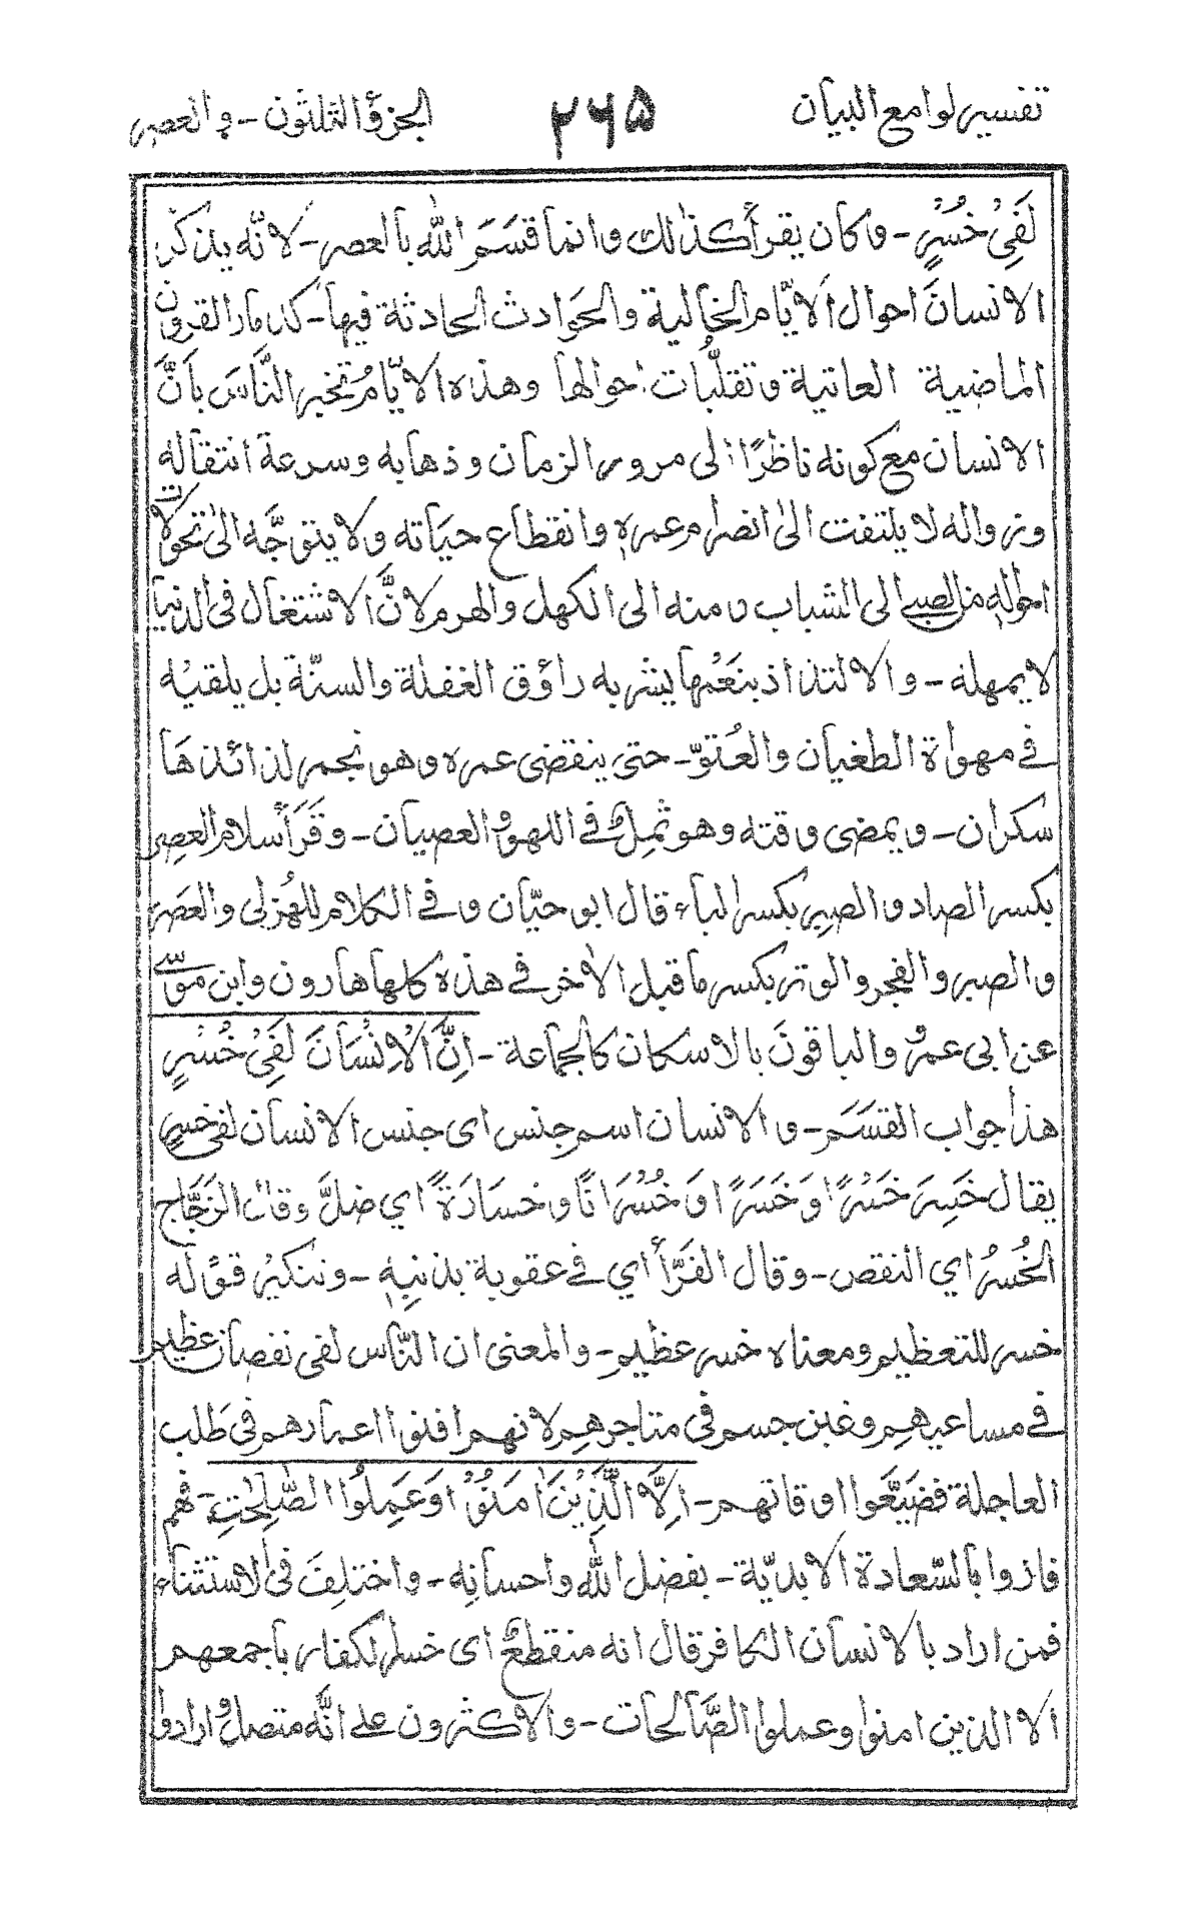 تفسير لوامع البيان ٢٦٥ الجزؤ الثلثون - والعصر
لَفِيْ خُسْرٍ - وكان يقرأ كذالك وانما قسَمَ الله بالعصر - لانّه يذكر
الانسانَ احوال الايّام الخالية والحَوادث الحادثة فيها - كدمار القرون
الماضية العاتية وتقلُّبات احوالها وهذه الايّامُ تخبر النَّاسَ بانَّ
الانسان مع كونه ناظرًا الى مرور الزمان وذهابه وسرعة انتقاله
وزواله لا يلتفت الىٰ انصرام عمره وانقطاع حيَاته ولا يتوجَّه الىٰ تحولات
احواله من الصبى الى الشباب ومنه الى الكهل والهرم لانَّ الاشتغال فى الدنيا
لا يمهله - والالتذاذ بنَعْمها يشربه راؤق الغفلة والسنّة بل يلقيْه
فى مهواة الطغيان والعُتوّ - حتى ينقضى عمره وهو نجمر لذائذهَا
سكران - ويمضى وقته وهو ثمِلٌ فى اللهو والعصيان - وقَرَأ سلام العصِر
بكسر الصاد والصبِر بكسر الباء قال ابو حيّان وفى الكلام للهُزلى والعصَر
والصبر والفجر والوتر بكسر ما قبل الاٰخر فى هذه كلها هارون وابن موسىٰ
عن ابى عمرٌو والباقونَ بالاسكان كالجماعة - اِنَّ الْاِنْسَانَ لَفِيْ خُسْرٍ
هذا جواب القسَمَ - والانسان اسم جنس اى جنس الانسان لفى خسرٍ
يقال خَسِرَ خَسْرًا وَخَسَرًا اوَ خُسْرَانًا وخسارَةً اي ضلَّ وقال الزجَّاج
الخُسرُ اي النقص - وقال الفَرَّأ اي فى عقوبة بذنبِهٖ - وتنكيرُ قوْله
خسر للتعظيم ومعناه خسر عظيم - والمعنى ان النَّاس لفى نقصان عظيم
فى مساعيهِم وغبن جسم فى متاجرهِم لانهم افنوا اعمارهم فى طَلب
العاجلة فضيَّعوا اوقاتهم - اِلَّا الَّذِيْنَ اٰمَنُوْا وَعَمِلُوا الصّٰلِحٰتِ - فهم
فازوا بالسّعادة الابديّة - بفضل الله واحسانِه - واختلِفَ فى الاستثناء
فمن اراد بالانسان الكافر قال انه منقطعٌ اى خسر الكفار باجمعهم
الا الذين امنوا وعملوا الصَّالحات - والاكثرون على انَّه متصل و ارادوا